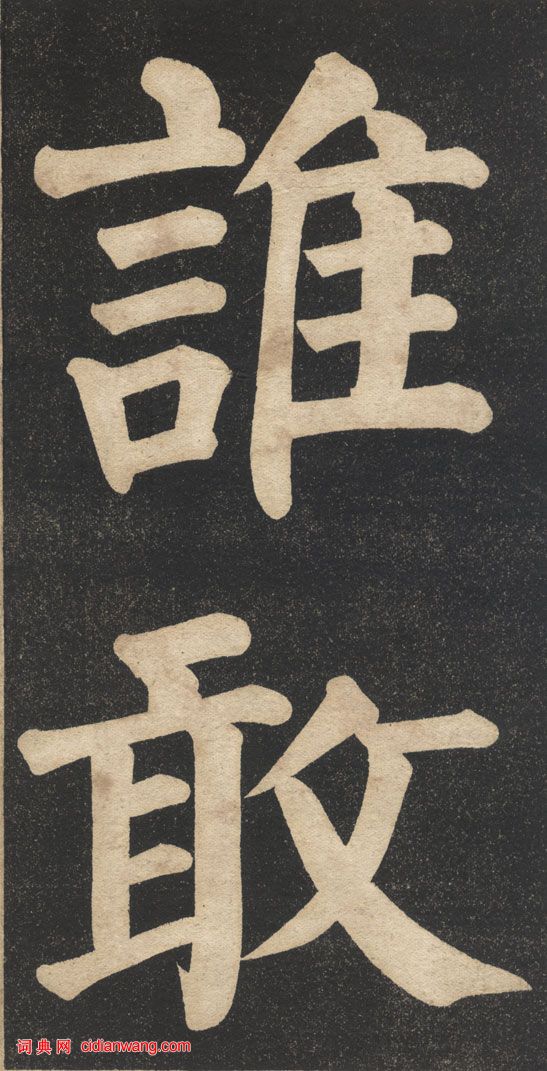 誰
敢
词典网 cidianwang.com